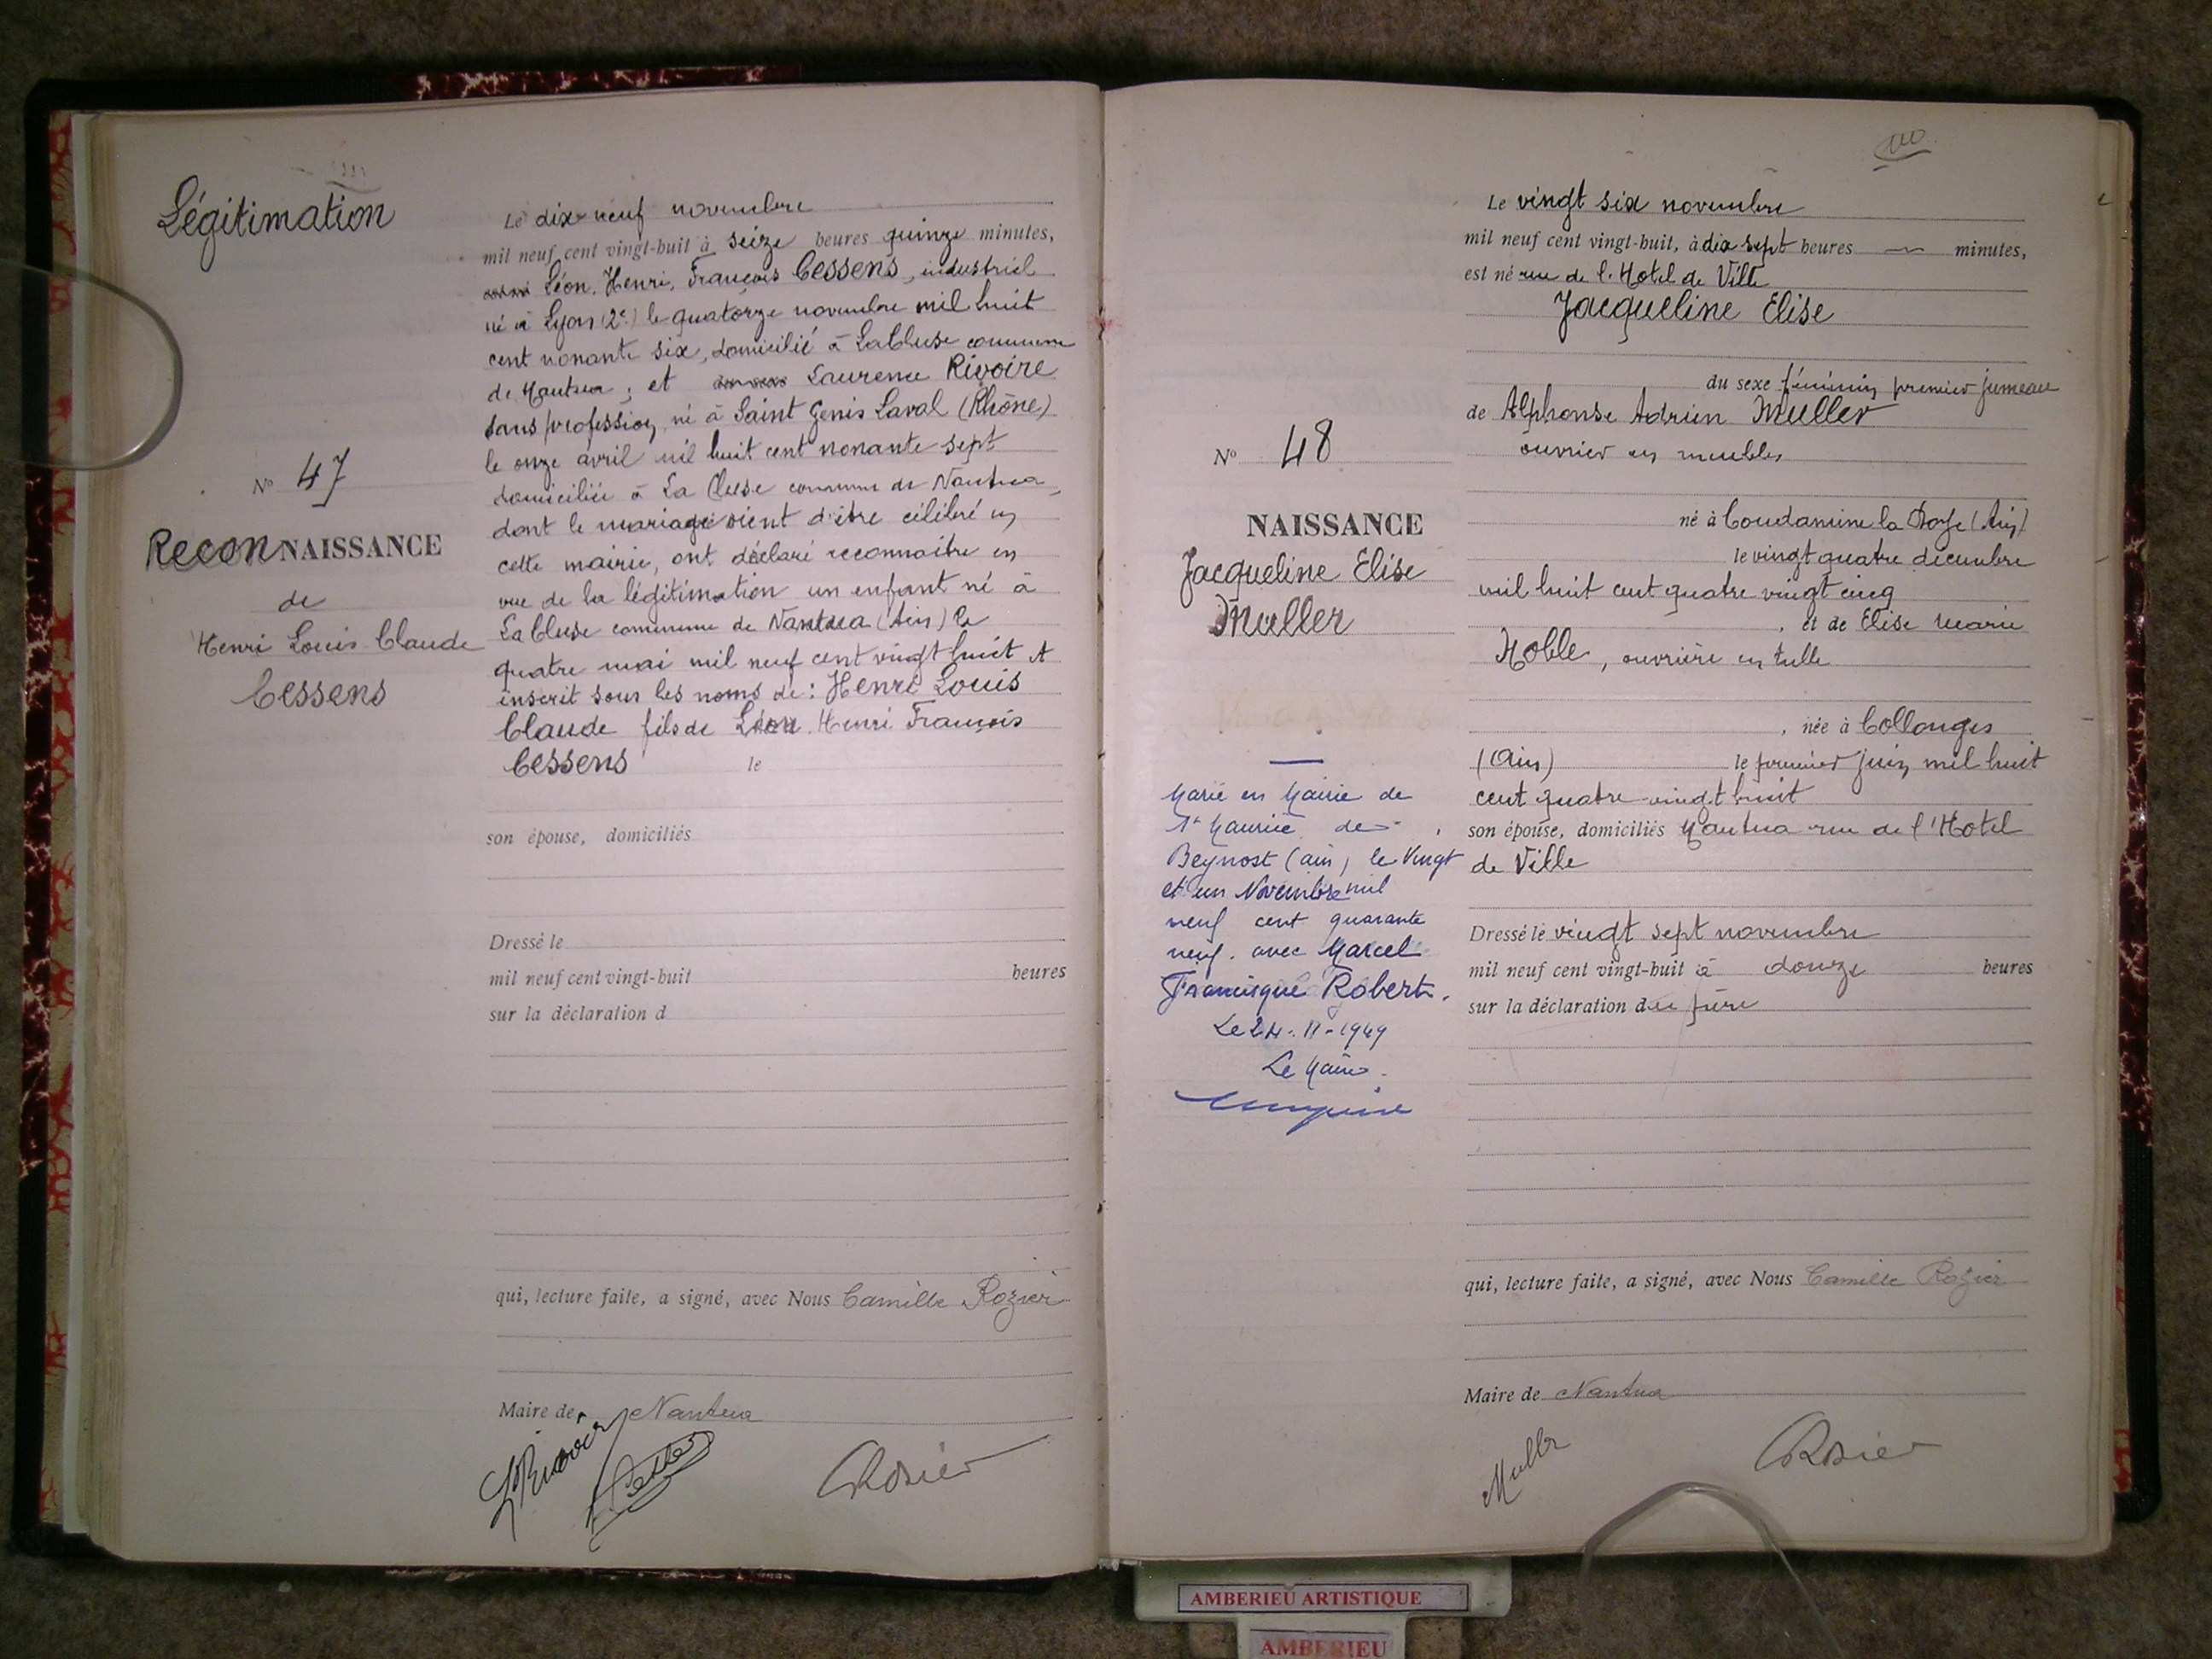 Légitimation
N° 47
ReconNAISSANCE
de
Henri Louis Claude
Cessens
Le dix-neuf novembre
mil neuf cent vingt-huit à seize heures quinze minutes,
Léon, Henri, François Cessens, industriel
né à Lyon (2e) le quatorze novembre mil huit
cent nonante six, domicilié à La Cluse commune
de Nantua ; et Laurence Rivoire
sans profession, né à Saint Genis Laval (Rhône)
le onze avril mil huit cent nonante sept
domiciliée à La Cluse commune de Nantua,
dont le mariage vient d'être célébré en
cette mairie, ont déclaré reconnaître en
vue de la légitimation un enfant né à
La Cluse commune de Nantua (Ain) le
quatre mai mil neuf cent vingt huit et
inscrit sous les noms de : Henri Louis
Claude fils de Léon Henri François
Cessens le
son épouse, domiciliés
Dressé le
mil neuf cent vingt-huit heures
sur la déclaration d
qui, lecture faite, a signé, avec Nous Camille Rozier
Maire de Nantua
LRivoire
Rosier
N° 48
NAISSANCE
Jacqueline Elise
Muller
Marié en Mairie de
St Maurice de
Beynost (ain) le Vingt
et un Novembre mil
neuf cent quarante
neuf. avec Marcel
Francisque Robert.
Le 24-11-1949
Le Maire.
Le vingt six novembre
mil neuf cent vingt-huit, à dix sept heures — minutes,
est né rue de l'Hotel de Ville
Jacqueline Elise
du sexe féminin premier jumeau
de Alphonse Adrien Muller
ouvrier en meubles
né à Condamine la Doye (Ain)
le vingt quatre décembre
mil huit cent quatre vingt cinq
, et de Elise Marie
Holle, ouvrière en tulle
, née à Collonges
(Ain) le premier juin mil huit
cent quatre-vingt huit
son épouse, domiciliés Nantua rue de l'Hotel
de Ville
Dressé le vingt sept novembre
mil neuf cent vingt-huit à douze heures
sur la déclaration du père
qui, lecture faite, a signé, avec Nous Camille Rozier
Maire de Nantua
Muller
Rosier
AMBERIEU ARTISTIQUE
AMBERIEU